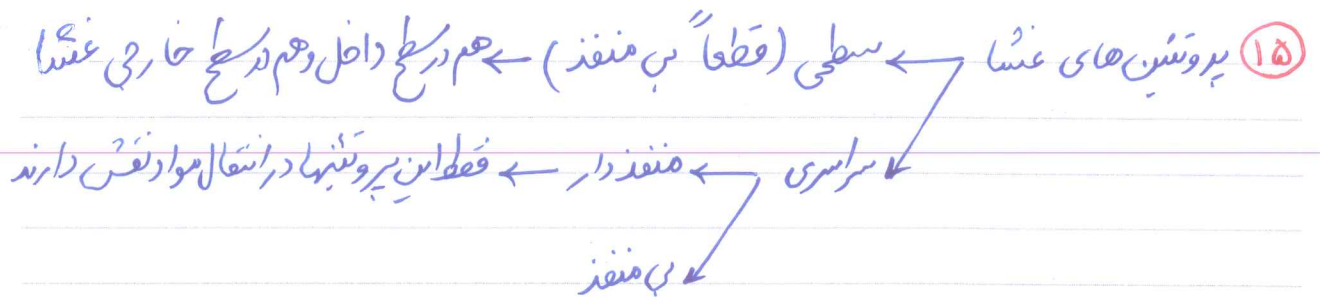 ۱۵ پروتئین های غشا ← سطحی (قطعاً بی منفذ) ← هم در سطح داخل و هم در سطح خارجی غشا
سراسری ← منفذ دار ← فقط این پروتئینها در انتقال مواد نقش دارند
بی منفذ